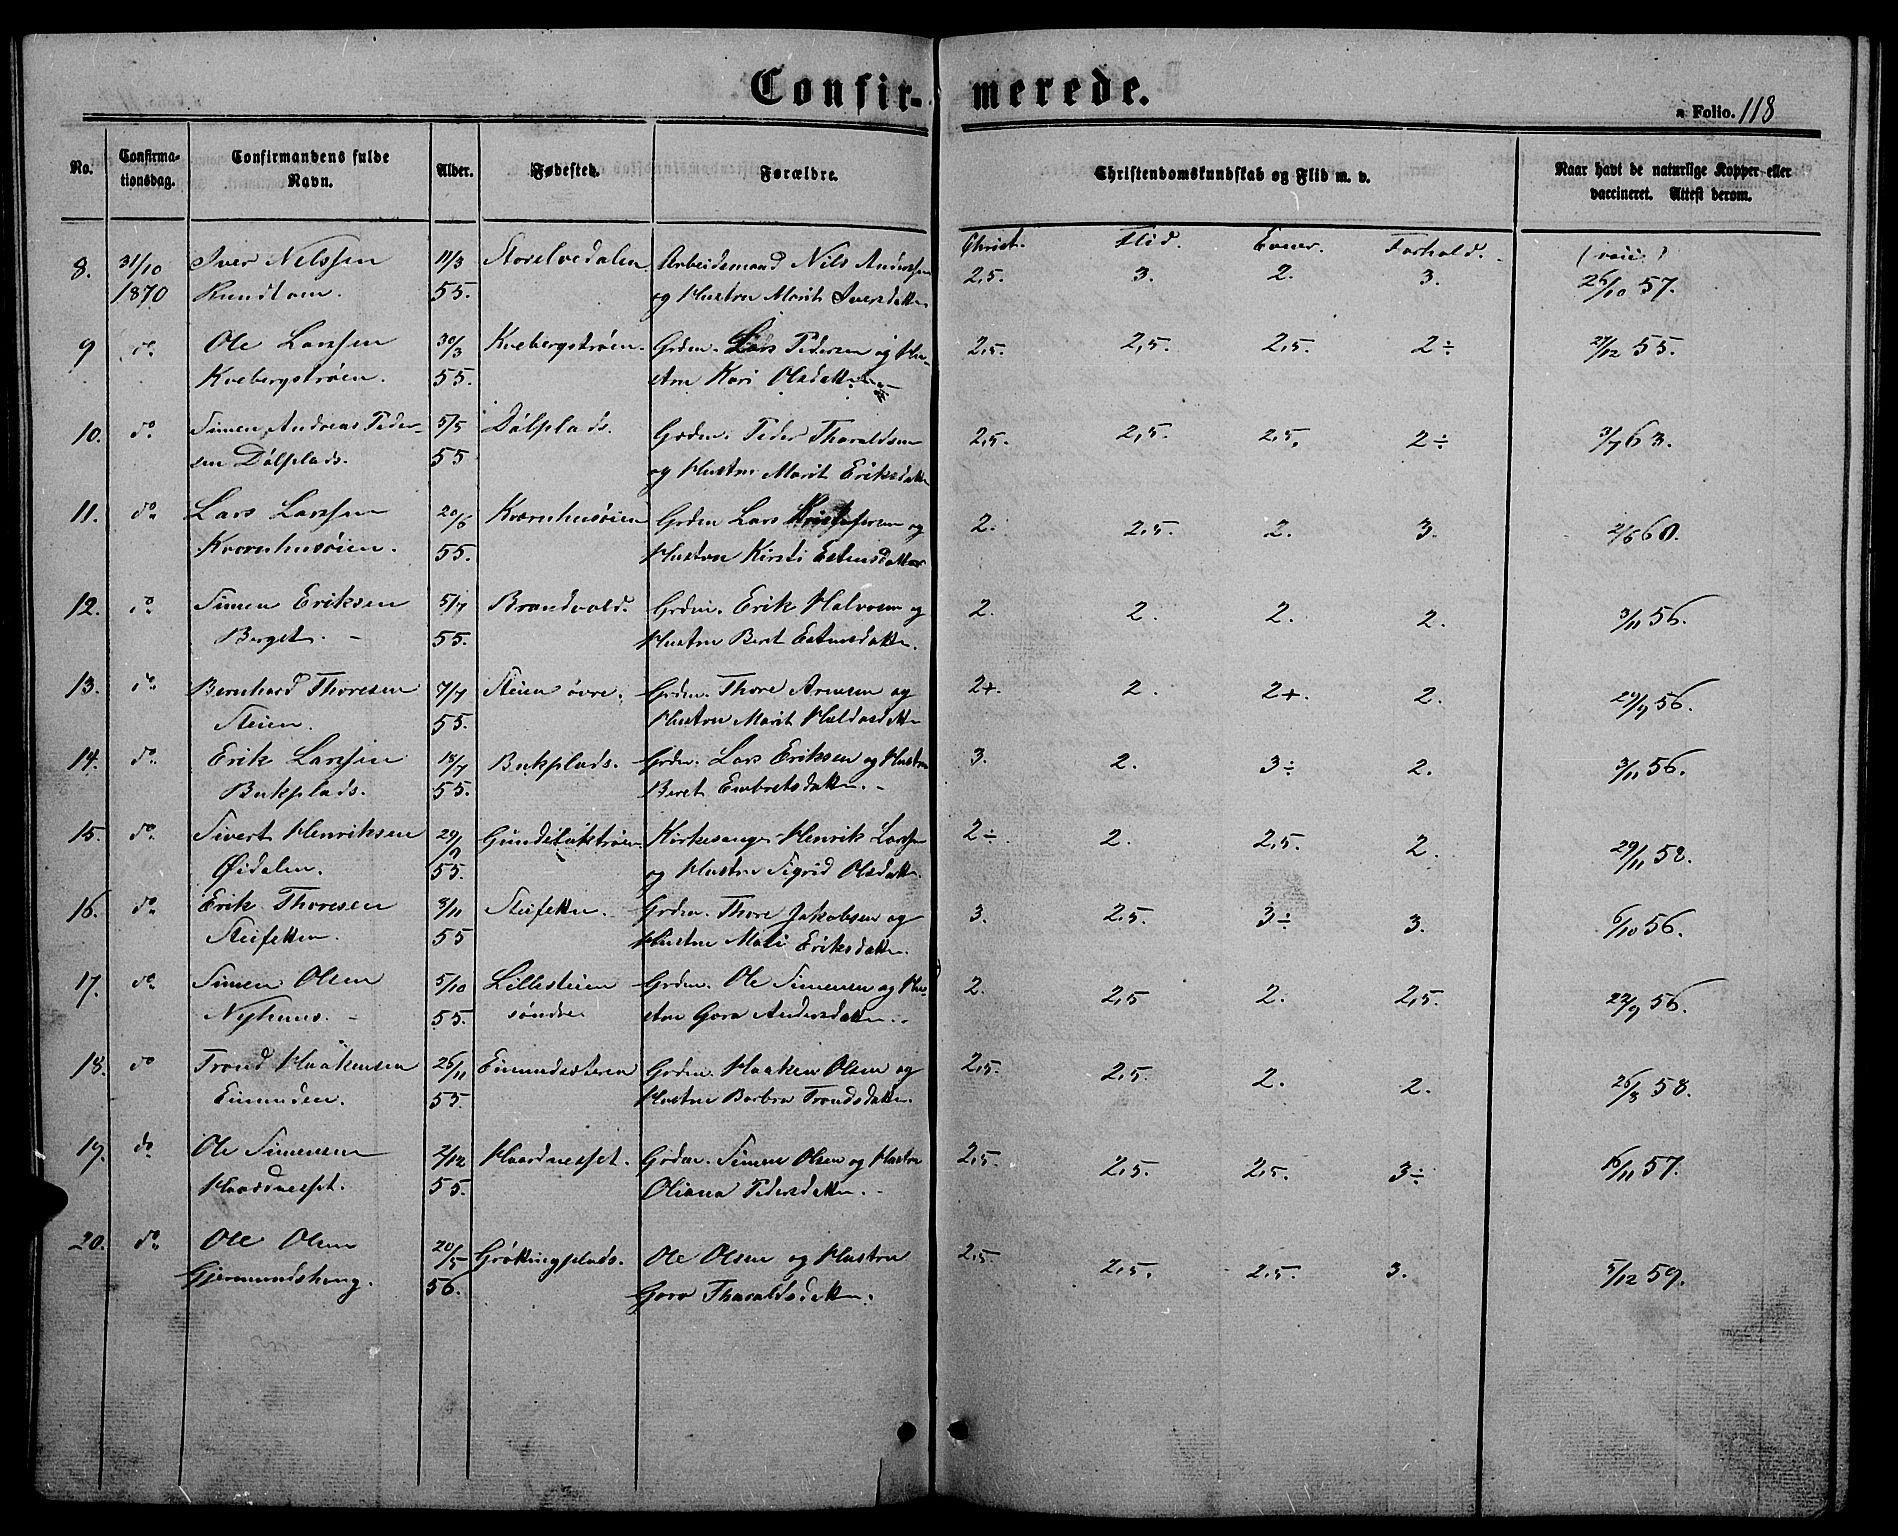 Confir- merede.
a Folio. 118
No. Confirma-tionsdag. Confirmandens fulde Navn. Alder. Fødested. Forældre. Christendomskundskab og Flid m. v. Naar havt de naturlige Kopper eller vaccineret. Attest derom.
Christ. Flid. Evner. Forhold. (vaccin)
8. 31/10 Iver Nilssen 11/3 Storelvedalen. Arbeidsmand Nils Anderssen 2,5. 3. 2. 3. 26/10 57.
1870 55. og Hustru Marit Iversdatter
9 do Ole Larssen 30/3 Kvebergstrøen. Grdm. Lars Pedersen og Hu- 2,5. 2,5. 2,5. 2÷ 27/12 55.
Kvebergstrøen. 55. stru Kari Olsdatter
10. do Simen Andreas Peder- 5/5 Dølplads. Grdm. Peder Tharaldsen 2,5. 2,5. 2,5. 2÷ 3/7 63.
sen Dølplads. 55 og Hustru Marit Eriksdatter
11. do Lars Larssen 20/6 Kvernhusøien Grdm Lars Kristofersen og 2. 2,5. 2. 3. 2/6 60.
Kvernhusøien. 55. Hustru Kirsti Estensdatter
12. do Simen Eriksen 5/7 Brandvold. Grdm. Erik Halvorsen og 2. 2. 2. 2. 3/11 56.
Berget. - 55. Hustru Beret Estensdatter.
13. do Bernhard Thoresen 7/7 Steien øvre. Grdm. Thore Arnesen og 2+. 2. 2+. 2. 29/9 56.
Steien. 55. Hustru Marit Haldosdatter
14. do Erik Larssen 18/7 Bukplads. Grdm. Lars Eriksen og Hustru 3. 2. 3÷ 2. 3/11 56.
Bukplads. 55. Beret Embretsdatter. -
15. do Sivert Henriksen 29/9 Kirkesanger Henrik Larssen 2÷ 2. 2,5. 2. 29/11 58.
Øidalen. 55. og Hustru Sigrid Olsdatter.
16. do Erik Thoresen 3/11 Steifetten. Grdm. Thore Jakobsen og 3. 2,5. 3÷ 3. 6/10 56.
Steifetten. 55 Hustru Mali Eriksdatter.
17. do Simen Olsen 5/10 Lillesteien Grdm. Ole Simensen og Hu- 2. 2,5 2. 2,5. 22/9 56.
Nyhuus. - 55. søndre stru Goro Andersdatter.
18. do Trond Haakensen 26/11 Einundsæteren Grdm. Haaken Olsen og 2,5. 2,5. 2. 2. 26/8 58.
Einunden. 55. Hustru Barbra Trondsdatter.
19. do Ole Simensen 2/12 Haardnesset. Grdm. Simen Olsen og Hustru 2,5. 2,5. 2,5. 3÷ 16/11 57.
Haardnesset. 55. Oliana Pedersdatter. -
20. do Ole Olsen 20/5 Grøttingplads. Ole Olsen og Hustru 2,5 2,5. 2,5. 3. 5/12 59.
Gjermundshaug. 56. Goro Tharaldsdatter.